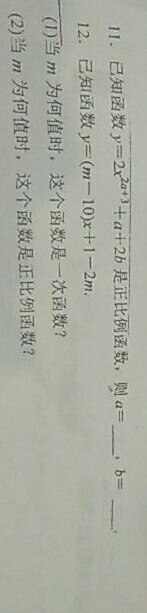 11. 已知函数 y=2x^{2a+3}+a+2b 是正比例函数，则 a=____，b=____.
12. 已知函数 y=(m-10)x+1-2m.
(1)当 m 为何值时，这个函数是一次函数？
(2)当 m 为何值时，这个函数是正比例函数？